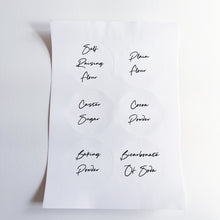 Self
Raising
flour
Plain
flour
Castor
Sugar
Cocoa
Powder
Baking
Powder
Bicarbonate
Of Soda